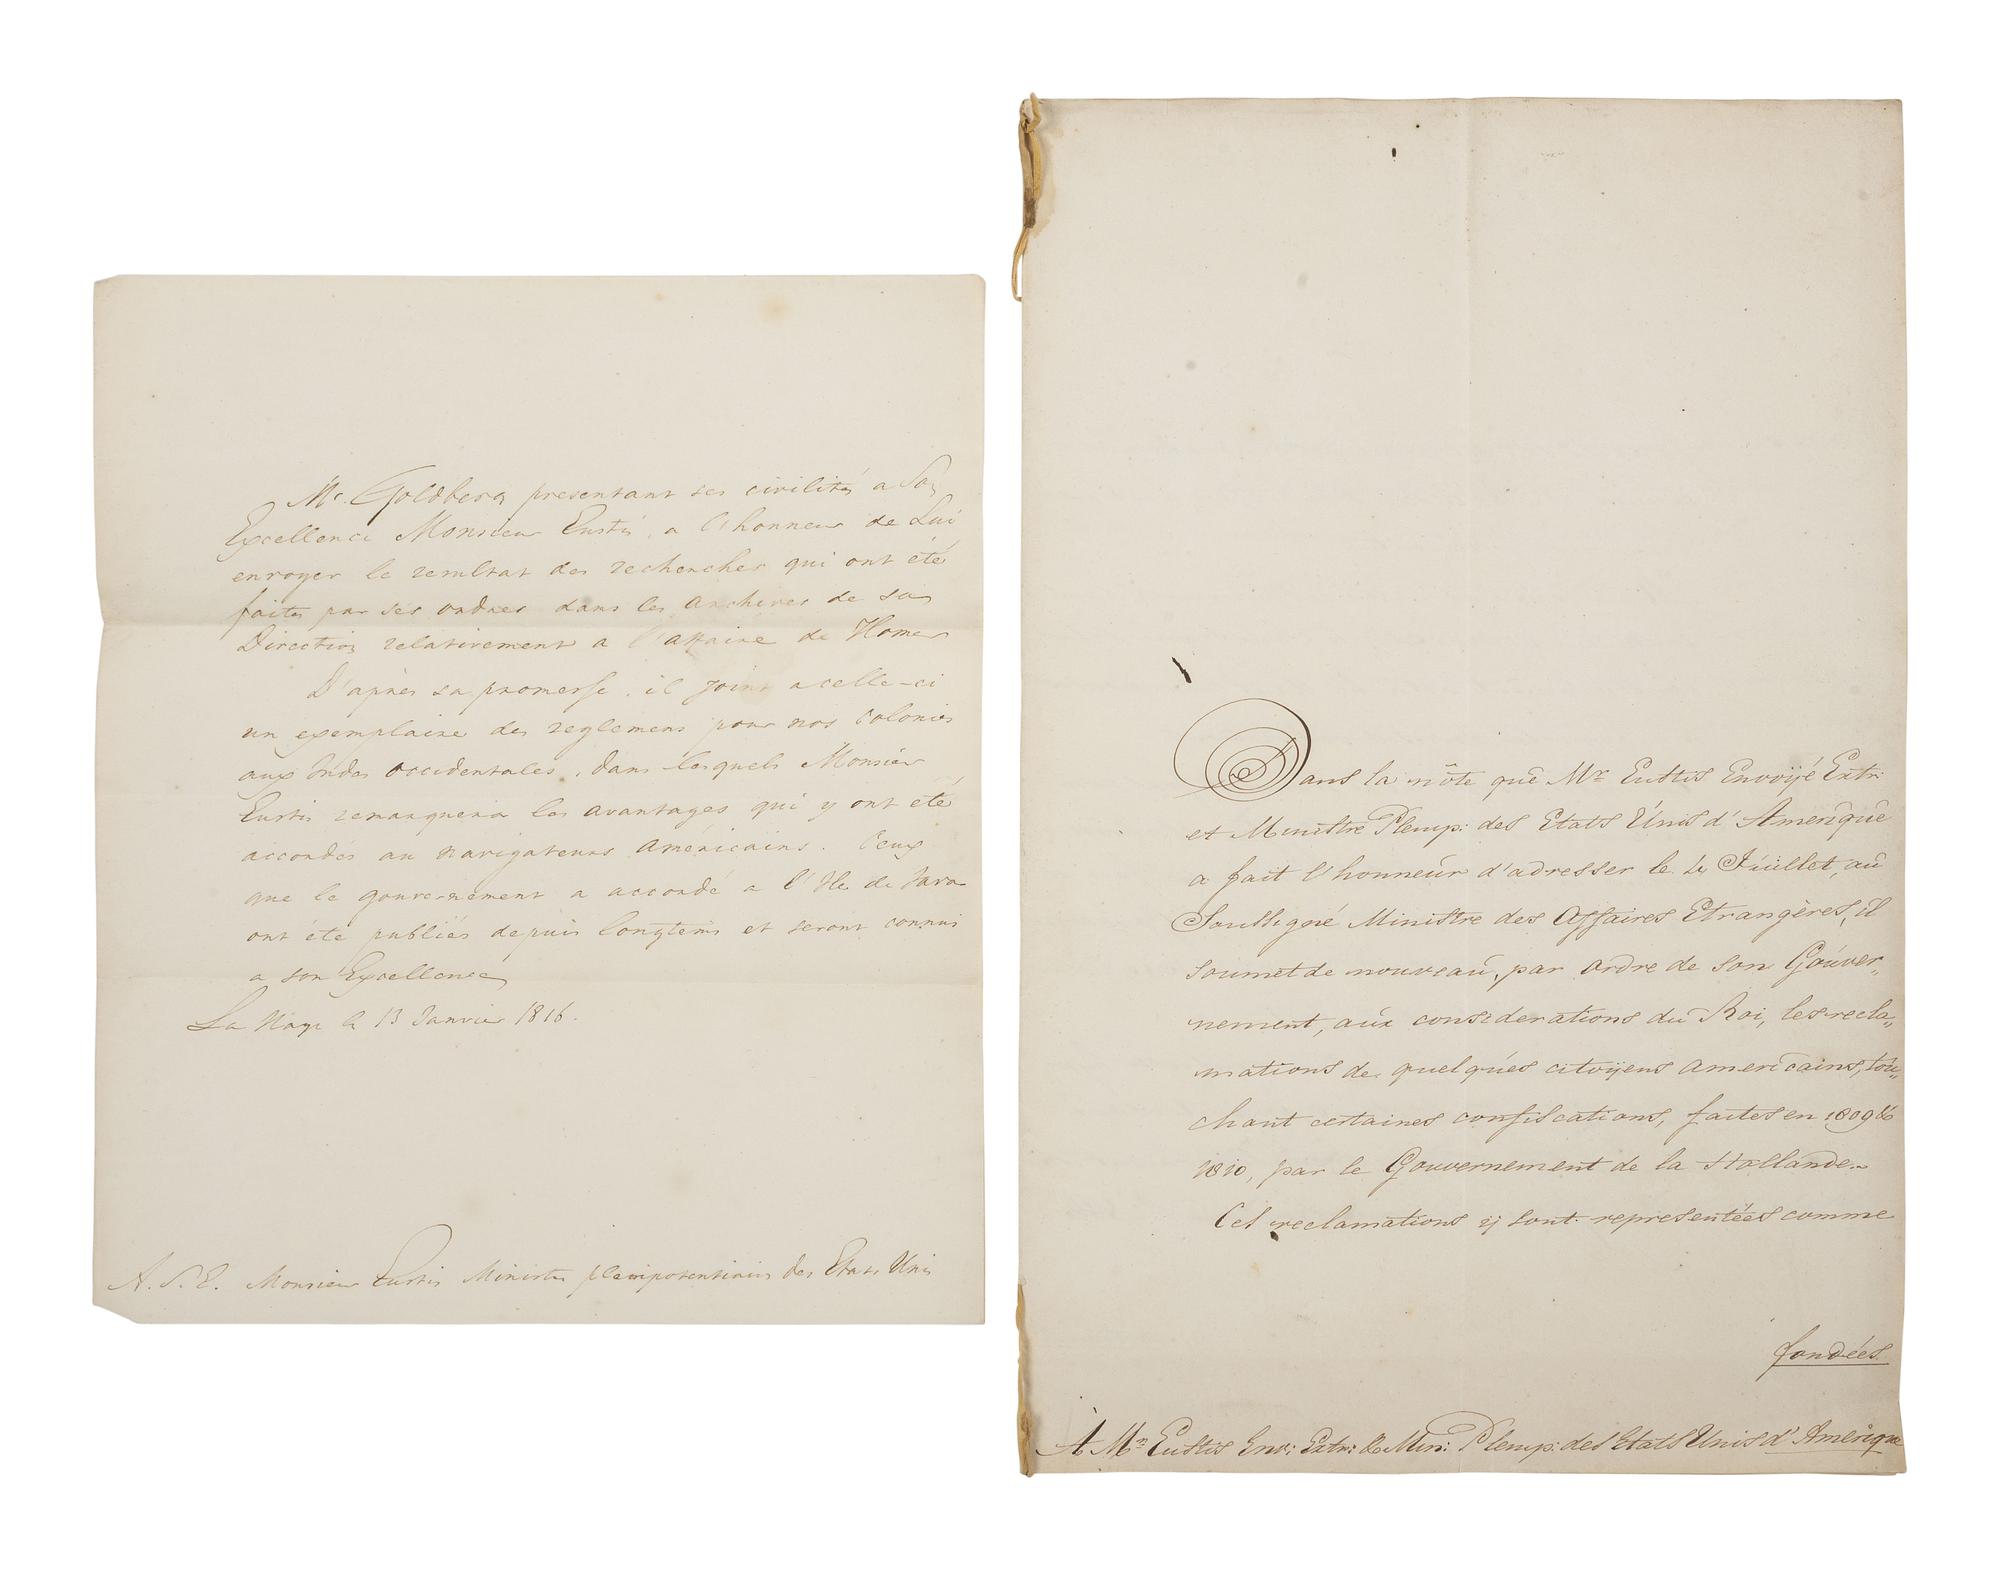 Mr. Goldberg presentant ses civilités a Son
Excellence Monsieur Eustis, a l'honneur de Lui
envoyer le resultat des recherches qui ont été
faites par ses ordres dans les Archives de sa
Direction relativement a l'affaire de Homer
D'après sa promesse, il joint a celle-ci
un exemplaire des reglemens pour nos Colonies
aux Indes Occidentales, dans lesquels Monsieur
Eustis remarquera les avantages qui y ont été
accordés au navigateurs Américains. Ceux
que le gouvernement a accordé a l'Ile de Java
ont été publiés depuis longtems et seront connus
a son Excellence
La Haye le 13 Janvier 1816.
A. S. E. Monsieur Eustis Ministre plenipotentiaire des Etats Unis
Dans la nôte que Mr Eustis Envoÿé Extr:
et Ministre Plenip: des Etats Unis d'Amerique
a fait l'honneur d'adresser le 4 Juillet, au
Soussigné Ministre des Affaires Etrangères, il
soumet de nouveau, par ordre de son Gouver„
nement, aux considerations du Roi, les recla„
mations de quelques citoÿens americains, tou„
chant certaines confiscations, faites en 1809 &
1810, par le Gouvernement de la Hollande.
Ces reclamations ÿ sont representées comme
fondées
À Mr Eustis Env: Extr: & Min: Plenip: des Etats Unis d'Amerique